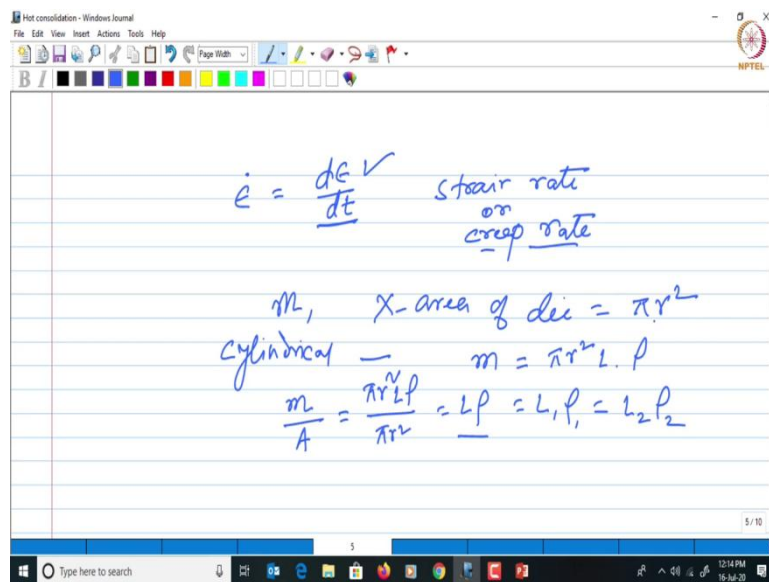 Hot consolidation - Windows Journal
File Edit View Insert Actions Tools Help
Page Width
NPTEL
B I
ε̇ = dε/dt ✓ strair rate
or
creep rate
m, X-area of die = πr²
cylindrical — m = πr² L. ρ
m/A = πr²Lρ/πr² = Lρ = L₁ρ₁ = L₂ρ₂
5/10
5
Type here to search
12:14 PM
16-Jul-20